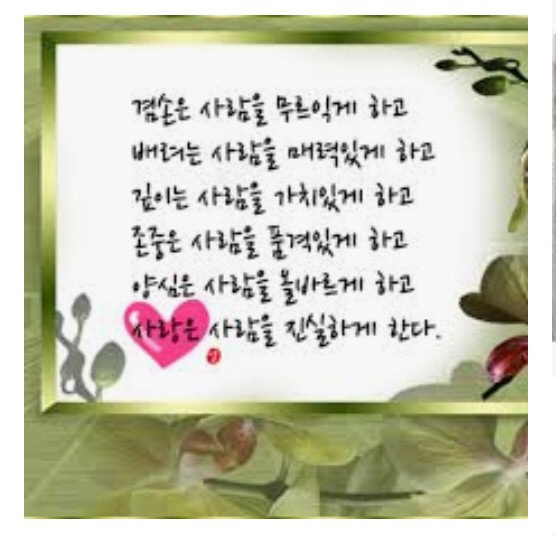 겸손은 사람을 무르익게 하고
배려는 사람을 매력있게 하고
깊이는 사람을 가치있게 하고
존중은 사람을 품격있게 하고
양심은 사람을 올바르게 하고
사랑은 사람을 진실하게 한다.